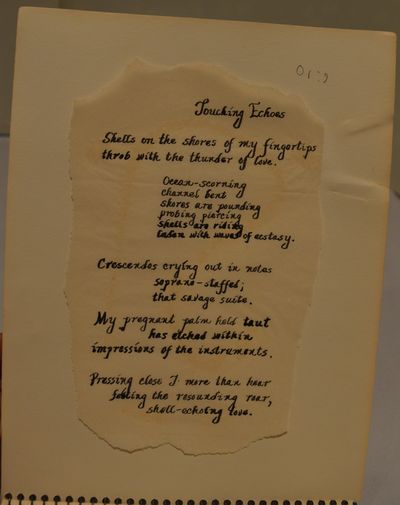 Touching Echoes
Shells on the shores of my fingertips
throb with the thunder of love.
Ocean-scorning
channel bent
shores are pounding
probing piercing
shells are riding
laden with waves of ecstasy.
Crescendos crying out in notes
soprano-staffed;
that savage suite.
My pregnant palm held taut
has etched within
impressions of the instruments.
Pressing close I more than hear
feeling the resounding roar,
shell-echoing love.